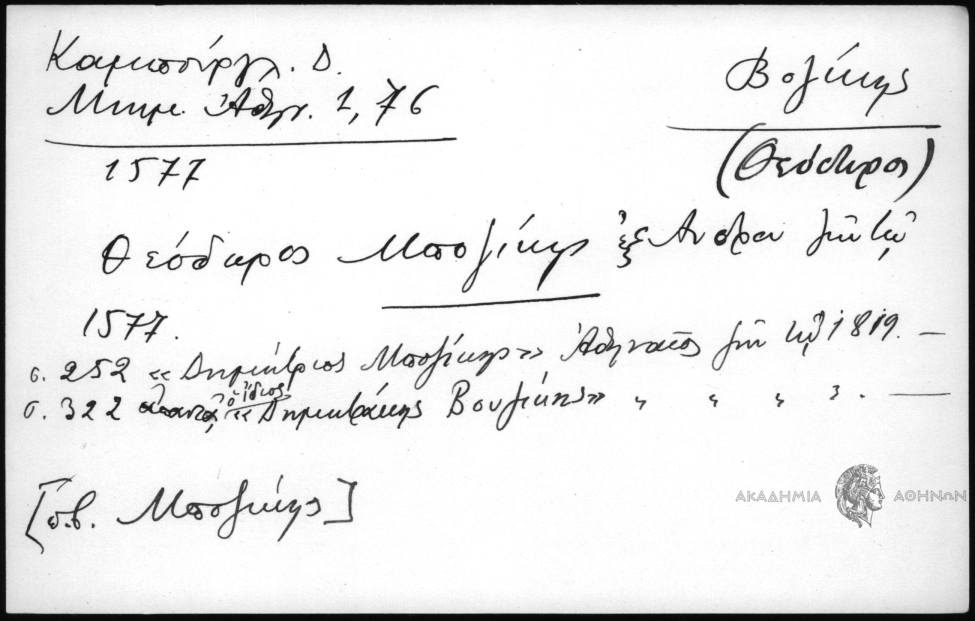 Καμπούρογλ. Δ.
Μνημ. Ἀθην. 1, 76
Βοζίκης
(Θεόδωρος)
1577
Θεόδωρος Μποζίκης ἐξ Άνδρου ζῇ τῷ
1577.
σ. 252 «Δημήτριος Μποζίκης» Ἀθηναῖος ζῇ τῷ 1819. —
σ. 322 ὁ ἴδιος «Δημητράκης Βουζίκης» „ „ „ „ . —
[π.β. Μποζίκης]
ΑΚΑΔΗΜΙΑ ΑΘΗΝΩΝ